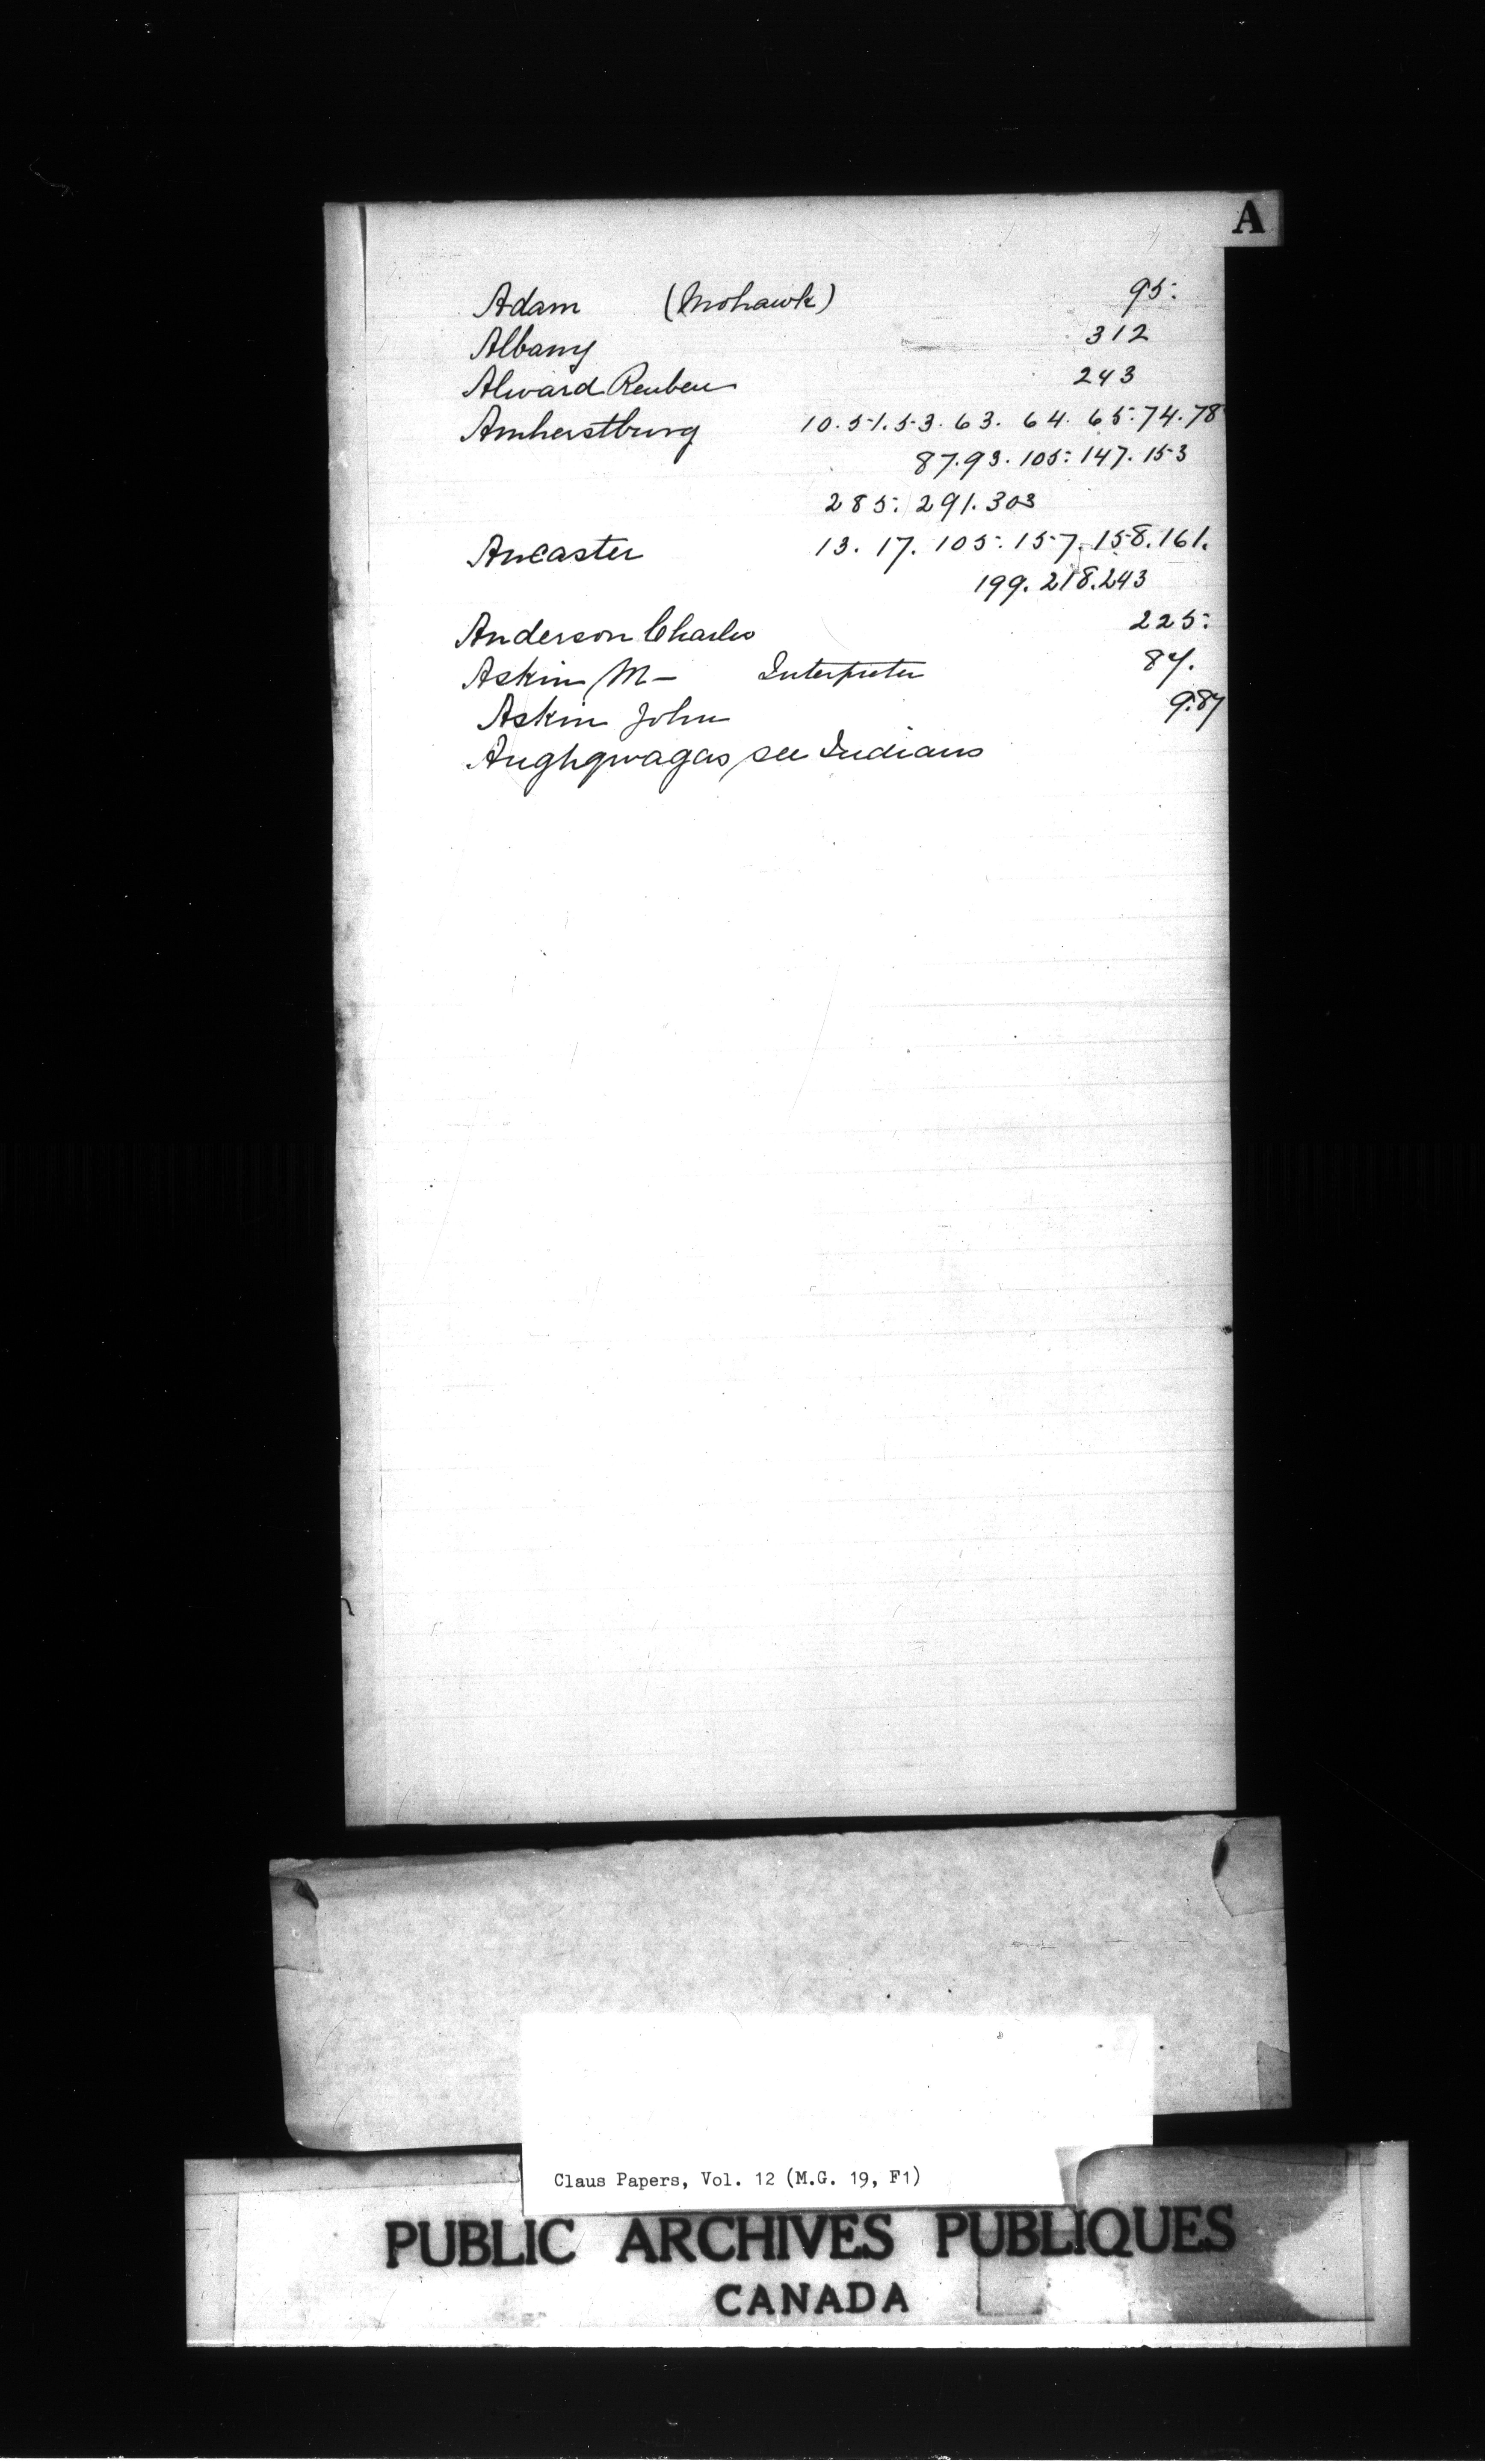 A
Adam (Mohawk) 95.
Albany 312
Alward Reuben 243
Amherstburg 10. 51. 53. 63. 64. 65. 74. 78
87. 93. 105. 147. 153
285. 291. 303
Ancaster 13. 17. 105. 157. 158. 161.
199. 218. 243
Anderson Charles 225.
Askin M— Interpreter 87.
Askin John 9. 87
Aughgwagas see Indians
Claus Papers, Vol. 12 (M.G. 19, F1)
PUBLIC ARCHIVES PUBLIQUES
CANADA